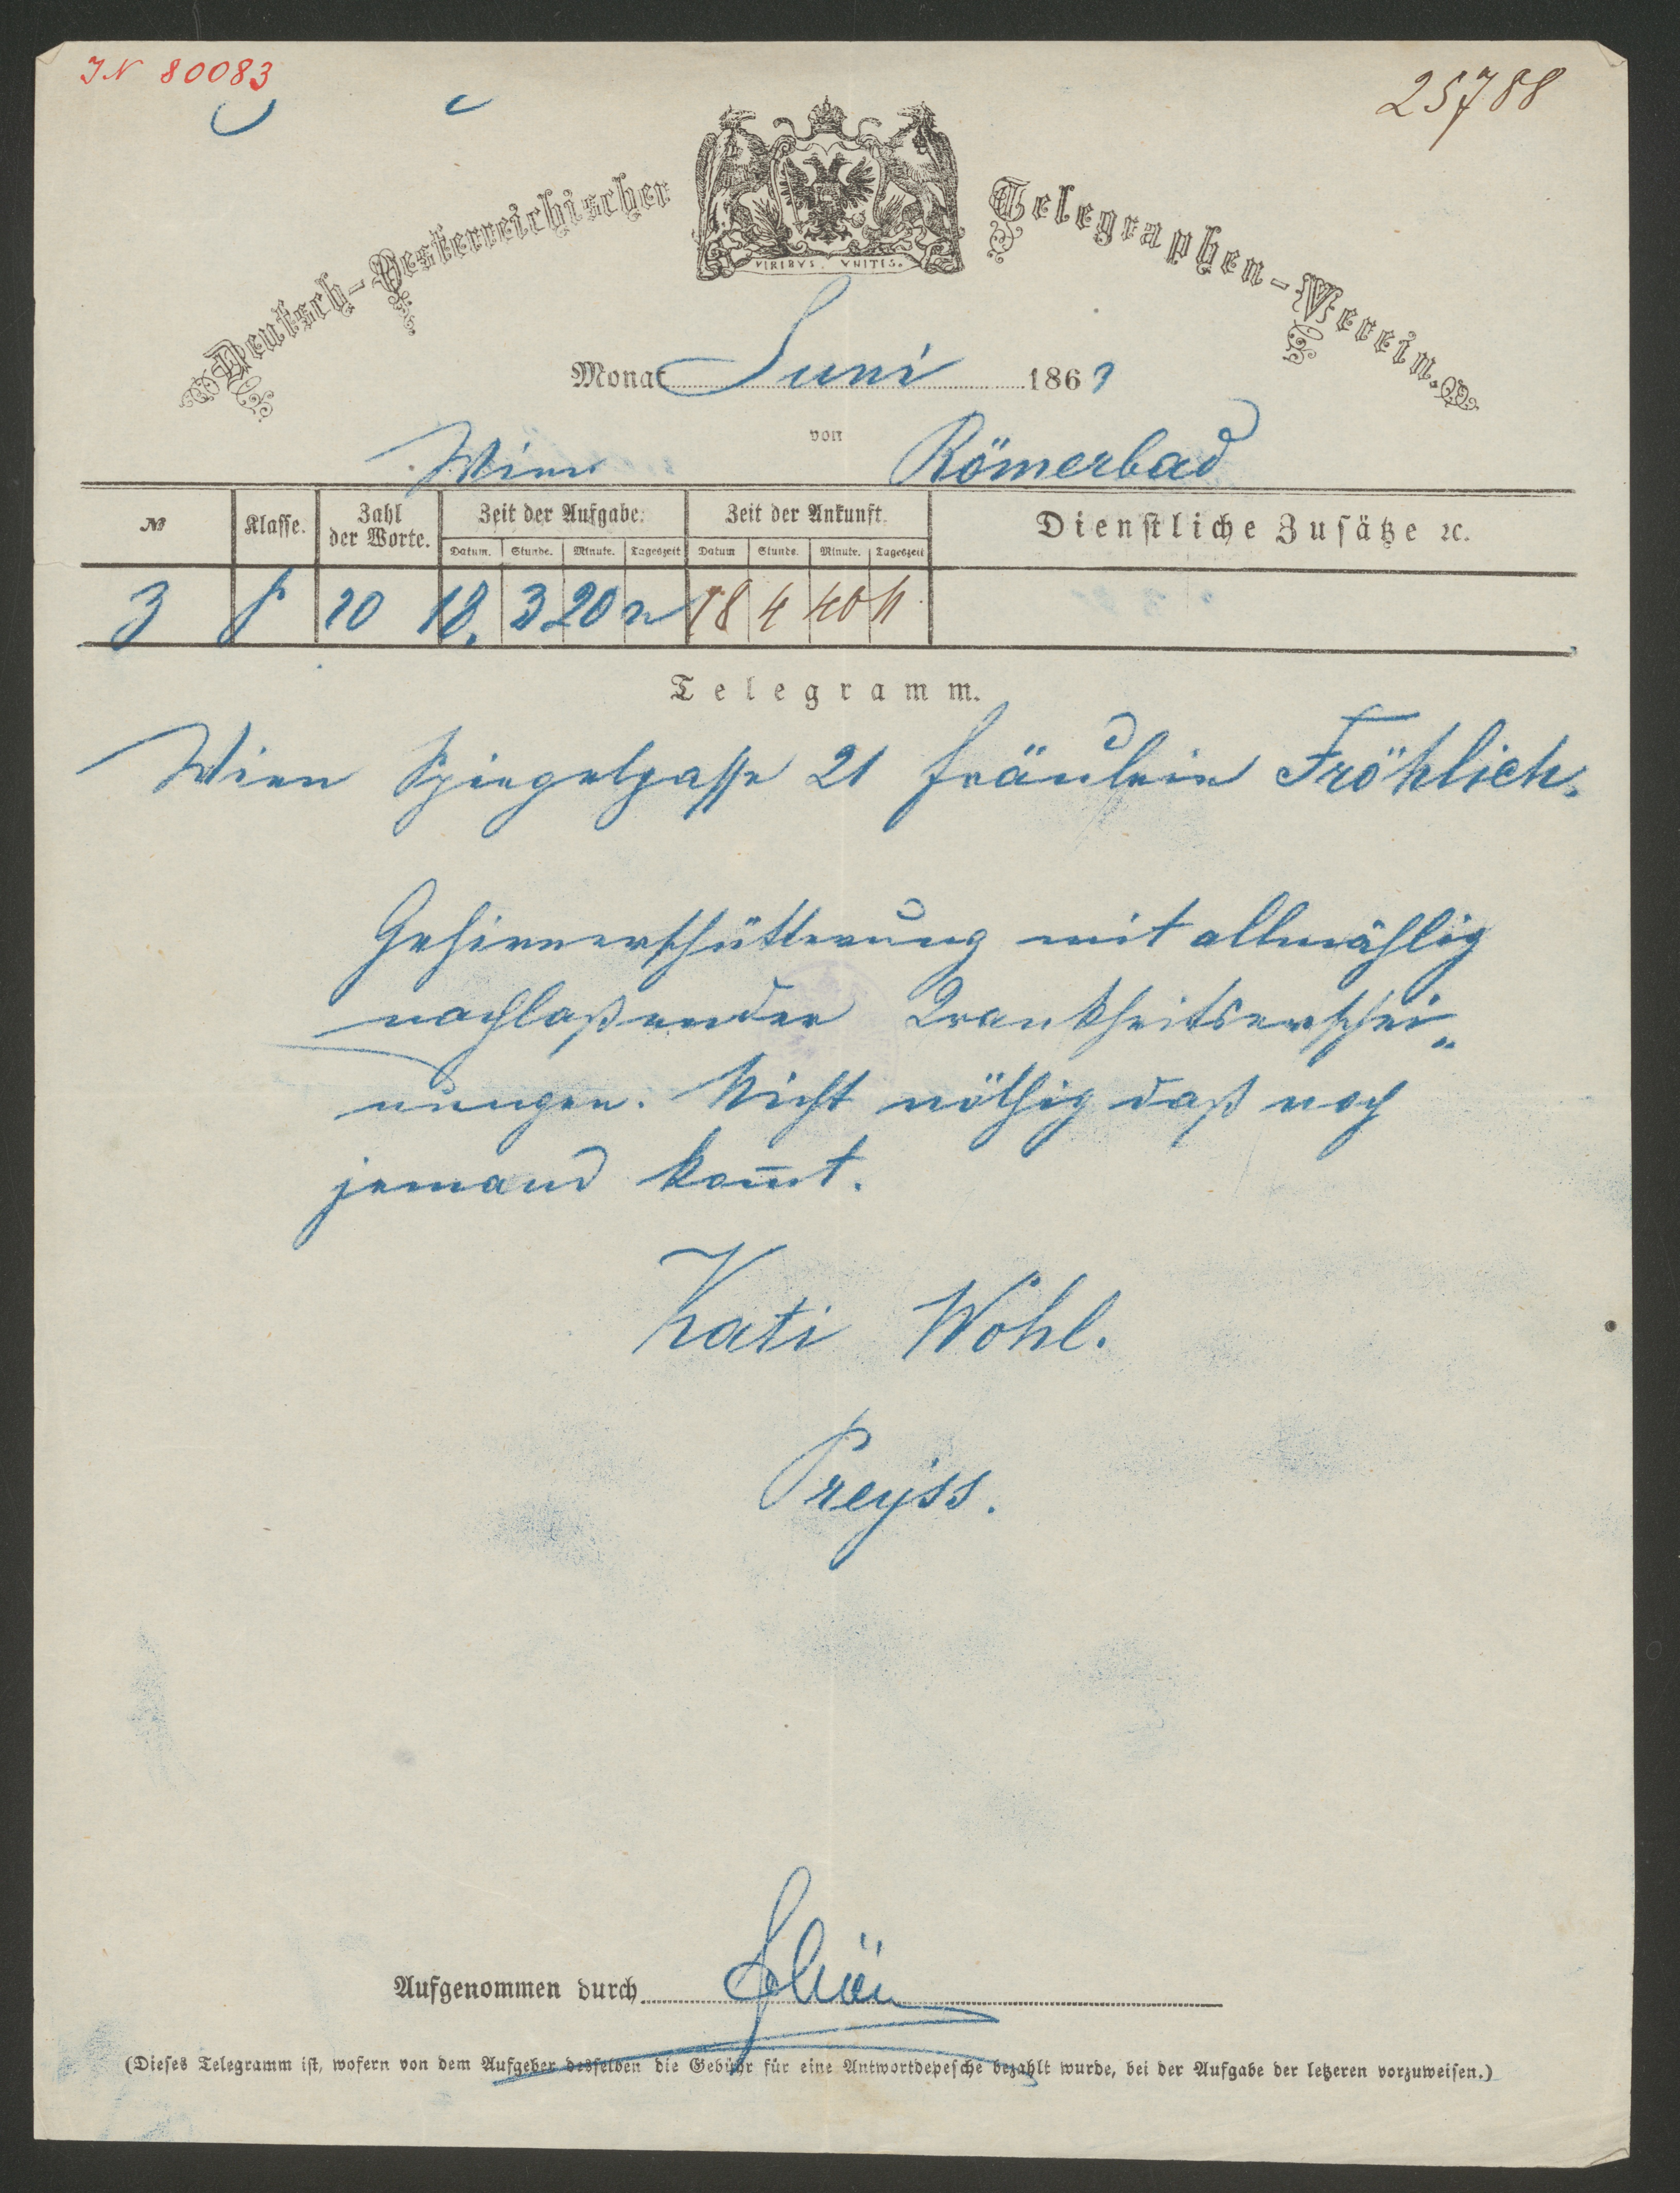 IN 80083
25788
Deutsch-Oesterreichischer Telegraphen-Verein.
VIRIBVS VNITIS.
Monat Juni 1863
Wien von Römerbad
№ Klasse. Zahl der Worte. Zeit der Aufgabe. Zeit der Ankunft. Dienstliche Zusätze ꝛc.
Datum. Stunde. Minute. Tageszeit Datum Stunde. Minute. Tageszeit
3 20 18. 3 20 n 18 4 40
Telegramm.
Wien Spiegelgasse 21 Fräulein Fröhlich.
Gehirnerschütterung mit allmählig
nachlaßenden Krankheitserschei„
nungen. Nicht nöthig daß noch
jemand kom̅t.
Kati Wohl.
Preyss.
Aufgenommen durch
(Dieses Telegramm ist, wofern von dem Aufgeber desselben die Gebühr für eine Antwortdepesche bezahlt wurde, bei der Aufgabe der letzeren vorzuweisen.)